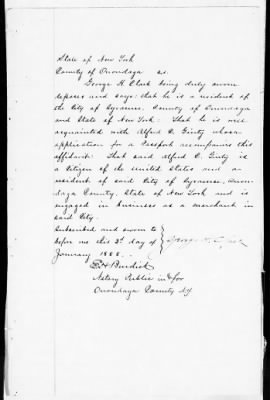 State of New York
County of Onondaga ss.
George H. Clark being duly sworn
deposes and says: that he is a resident of
the City of Syracuse, County of Onondaga
and State of New York: That he is well
acquainted with Alfred C. Ginty whose
application for a Passport accompanies this
affidavit: That said Alfred C. Ginty is
a Citizen of the United States and a
resident of said City of Syracuse, Onon-
daga County, State of New York and is
engaged in business as a merchant in
said City.
Subscribed and sworn to
before me this 3d day of
January 1888. -
Burdick
Notary Public in & for
Onondaga County N.Y.